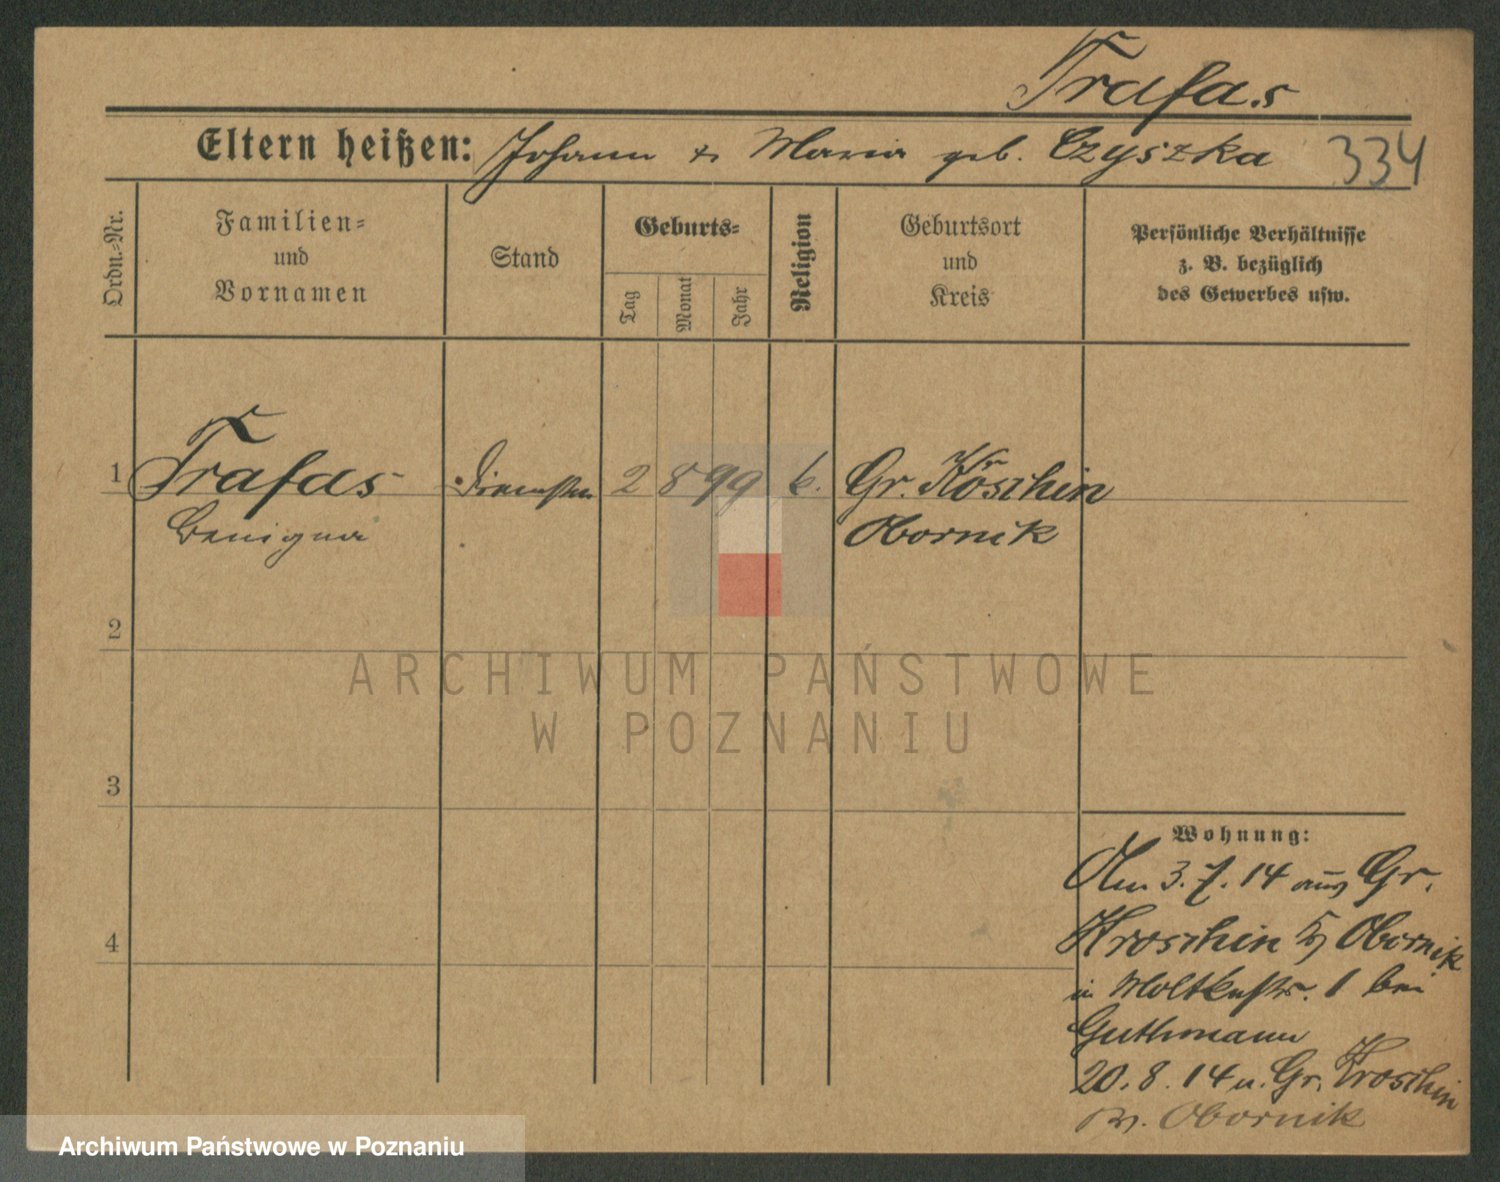 Trafas
Eltern heißen: Johann & Maria geb. Czyszka 334
Ordn.-Nr.
Familien-
und
Vornamen
Stand
Geburts-
Tag
Monat
Jahr
Religion
Geburtsort
und
Kreis
Persönliche Verhältnisse
z. B. bezüglich
des Gewerbes usw.
1 Trafas 2 8 99 k. Gr. Kroschin
Benigna Obornik
2
3
4
Wohnung:
Am 3. 7. 14 aus Gr.
Kroschin Kr Obornik
in Moltkestr. 1 bei
Guthmann
20. 8. 14 n. Gr. Kroschin
Kr. Obornik
ARCHIWUM PAŃSTWOWE
W POZNANIU
Archiwum Państwowe w Poznaniu